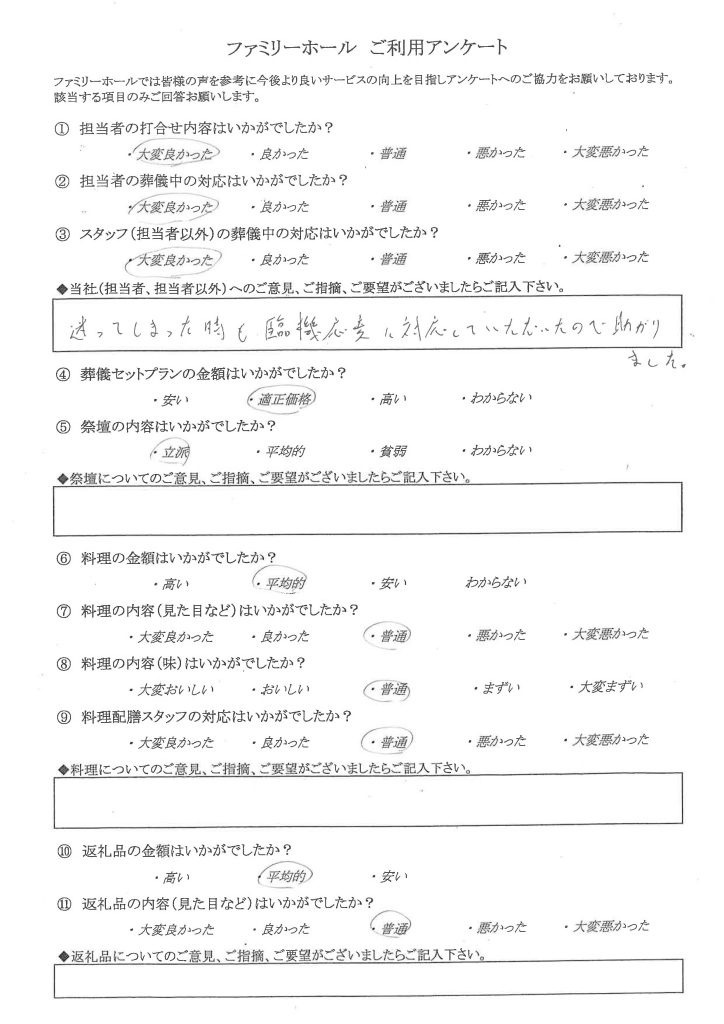 ファミリーホール ご利用アンケート
ファミリーホールでは皆様の声を参考に今後より良いサービスの向上を目指しアンケートへのご協力をお願いしております。
該当する項目のみご回答お願いします。
① 担当者の打合せ内容はいかがでしたか？
・大変良かった ・良かった ・普通 ・悪かった ・大変悪かった
② 担当者の葬儀中の対応はいかがでしたか？
・大変良かった ・良かった ・普通 ・悪かった ・大変悪かった
③ スタッフ（担当者以外）の葬儀中の対応はいかがでしたか？
・大変良かった ・良かった ・普通 ・悪かった ・大変悪かった
◆当社（担当者、担当者以外）へのご意見、ご指摘、ご要望がございましたらご記入下さい。
迷ってしまった時も臨機応変に対応していただいたので助かり
ました。
④ 葬儀セットプランの金額はいかがでしたか？
・安い ・適正価格 ・高い ・わからない
⑤ 祭壇の内容はいかがでしたか？
・立派 ・平均的 ・貧弱 ・わからない
◆祭壇についてのご意見、ご指摘、ご要望がございましたらご記入下さい。
⑥ 料理の金額はいかがでしたか？
・高い ・平均的 ・安い わからない
⑦ 料理の内容（見た目など）はいかがでしたか？
・大変良かった ・良かった ・普通 ・悪かった ・大変悪かった
⑧ 料理の内容（味）はいかがでしたか？
・大変おいしい ・おいしい ・普通 ・まずい ・大変まずい
⑨ 料理配膳スタッフの対応はいかがでしたか？
・大変良かった ・良かった ・普通 ・悪かった ・大変悪かった
◆料理についてのご意見、ご指摘、ご要望がございましたらご記入下さい。
⑩ 返礼品の金額はいかがでしたか？
・高い ・平均的 ・安い
⑪ 返礼品の内容（見た目など）はいかがでしたか？
・大変良かった ・良かった ・普通 ・悪かった ・大変悪かった
◆返礼品についてのご意見、ご指摘、ご要望がございましたらご記入下さい。